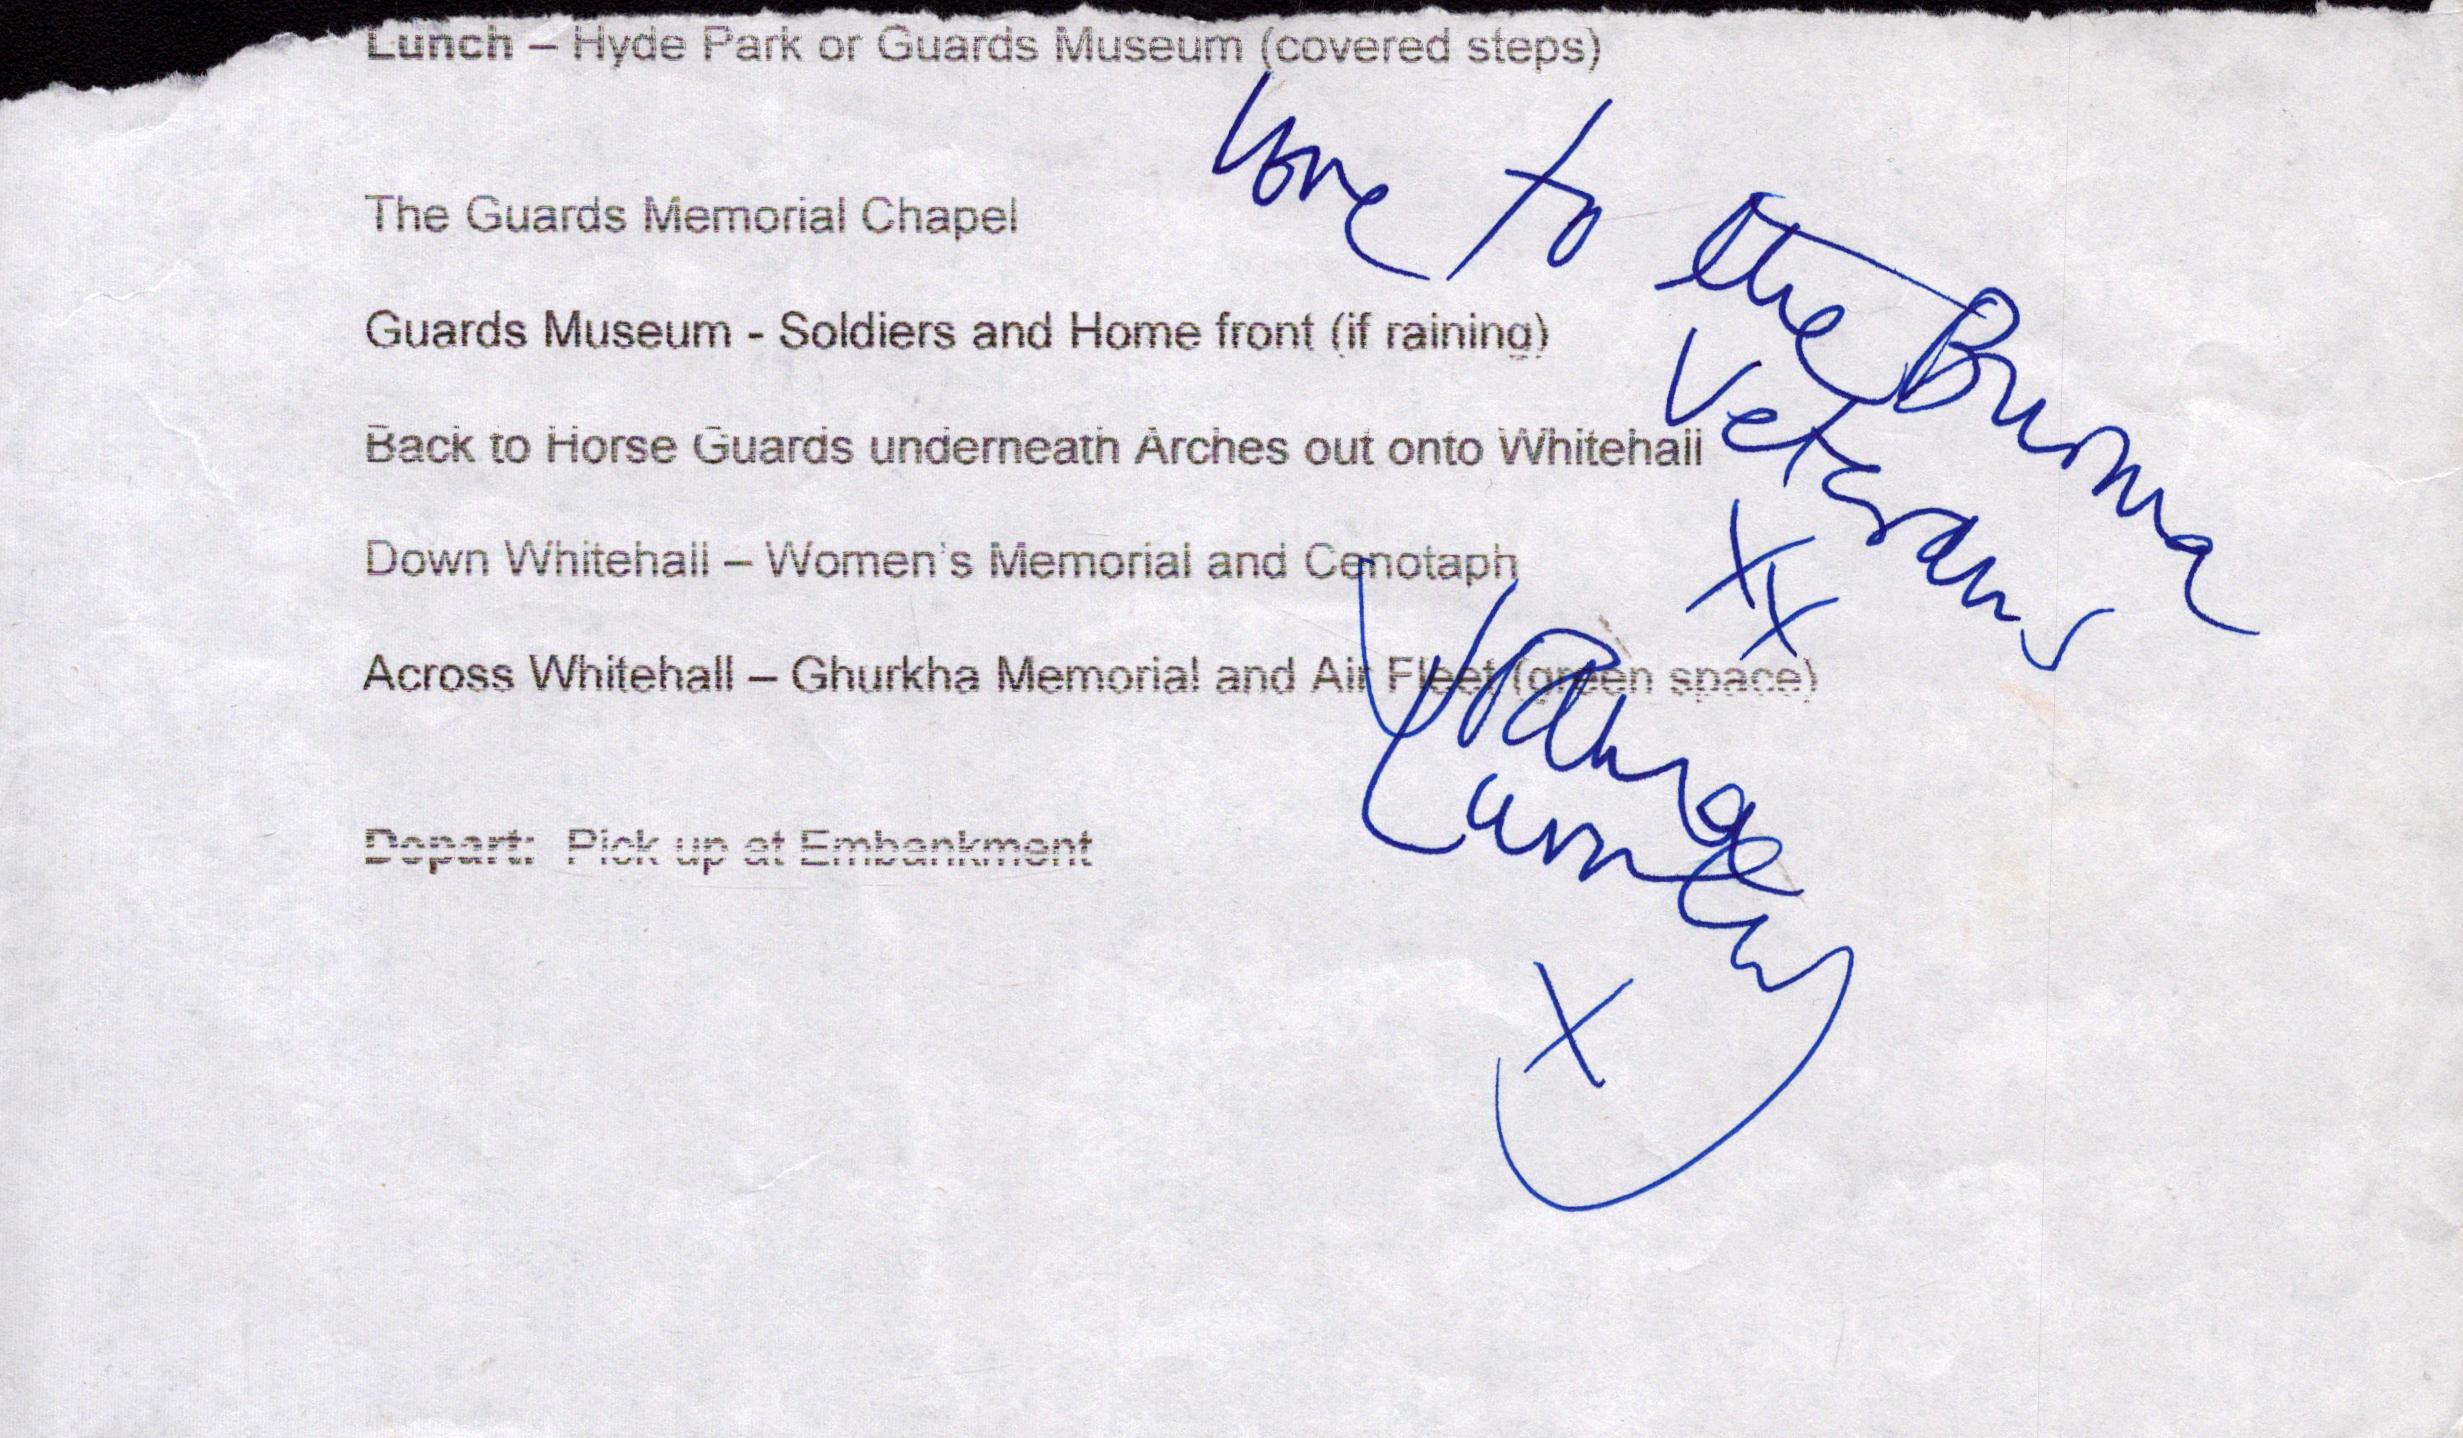 Lunch – Hyde Park or Guards Museum (covered steps)
The Guards Memorial Chapel
Guards Museum - Soldiers and Home front (if raining)
Back to Horse Guards underneath Arches out onto Whitehall
Down Whitehall – Women's Memorial and Cenotaph
Across Whitehall – Ghurkha Memorial and Air Fleet (green space)
Depart: Pick up at Embankment
love to the Burma
Veterans
XX
Joanna
Lumley
X